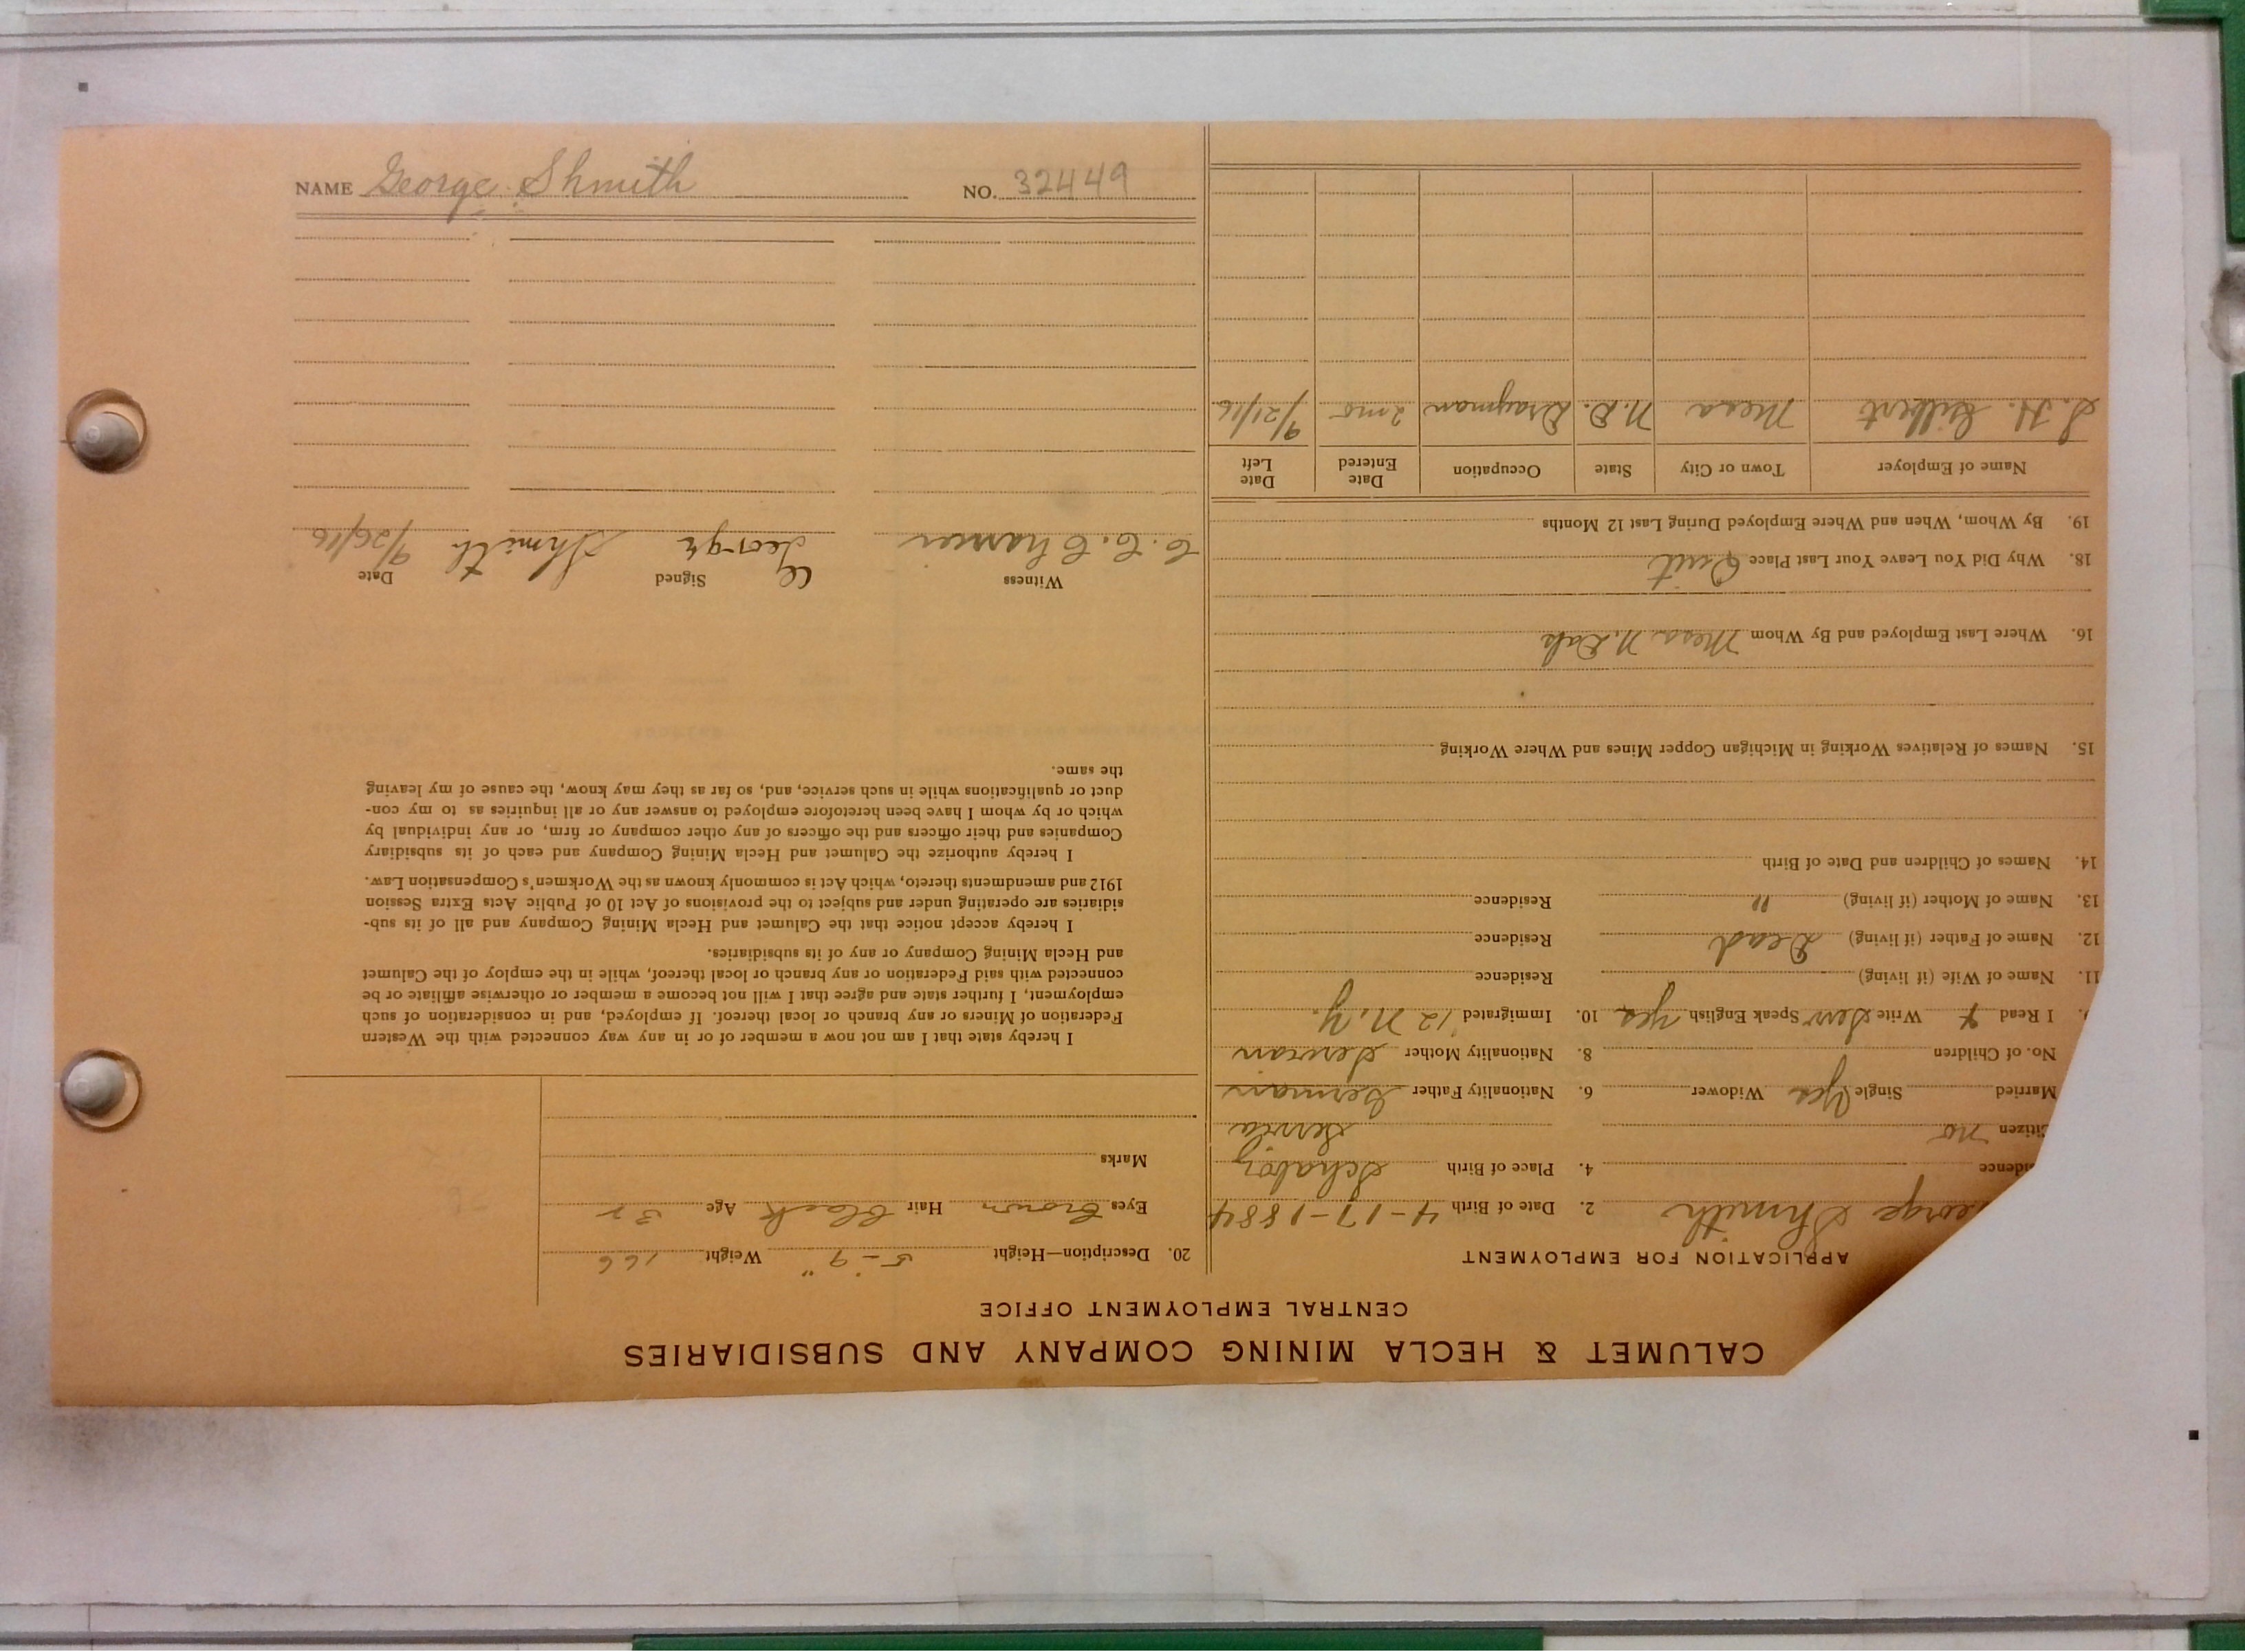 NAME George Shmith NO. 32449
CALUMET & HECLA MINING COMPANY AND SUBSIDIARIES
CENTRAL EMPLOYMENT OFFICE
APPLICATION FOR EMPLOYMENT
eorge Shmith 2. Date of Birth 4-17-1884
idence 4. Place of Birth Schaboz
itizen no Servia
Married Single Yes Widower 6. Nationality Father German
No. of Children 8. Nationality Mother German
9. I Read + Write Speak English yes 10. Immigrated '12 N.Y.
11. Name of Wife (if living) Residence
12. Name of Father (if living) Dead Residence
13. Name of Mother (if living) " Residence
14. Names of Children and Date of Birth
15. Names of Relatives Working in Michigan Copper Mines and Where Working
16. Where Last Employed and By Whom N. Dak
18. Why Did You Leave Your Last Place Quit
19. By Whom, When and Where Employed During Last 12 Months
Name of Employer Town or City State Occupation Date Entered Date Left
Gilbert N.D. Drayman 2 mo 9/21/16
20. Description—Height 5'-9" Weight 166
Eyes Brown Hair Black Age 32
Marks
I hereby state that I am not now a member of or in any way connected with the Western
Federation of Miners or any branch or local thereof. If employed, and in consideration of such
employment, I further state and agree that I will not become a member or otherwise affiliate or be
connected with said Federation or any branch or local thereof, while in the employ of the Calumet
and Hecla Mining Company or any of its subsidiaries.
I hereby accept notice that the Calumet and Hecla Mining Company and all of its sub-
sidiaries are operating under and subject to the provisions of Act 10 of Public Acts Extra Session
1912 and amendments thereto, which Act is commonly known as the Workmen's Compensation Law.
I hereby authorize the Calumet and Hecla Mining Company and each of its subsidiary
Companies and their officers and the officers of any other company or firm, or any individual by
which or by whom I have been heretofore employed to answer any or all inquiries as to my con-
duct or qualifications while in such service, and, so far as they may know, the cause of my leaving
the same.
Witness Signed Date
George Shmith 9/26/16